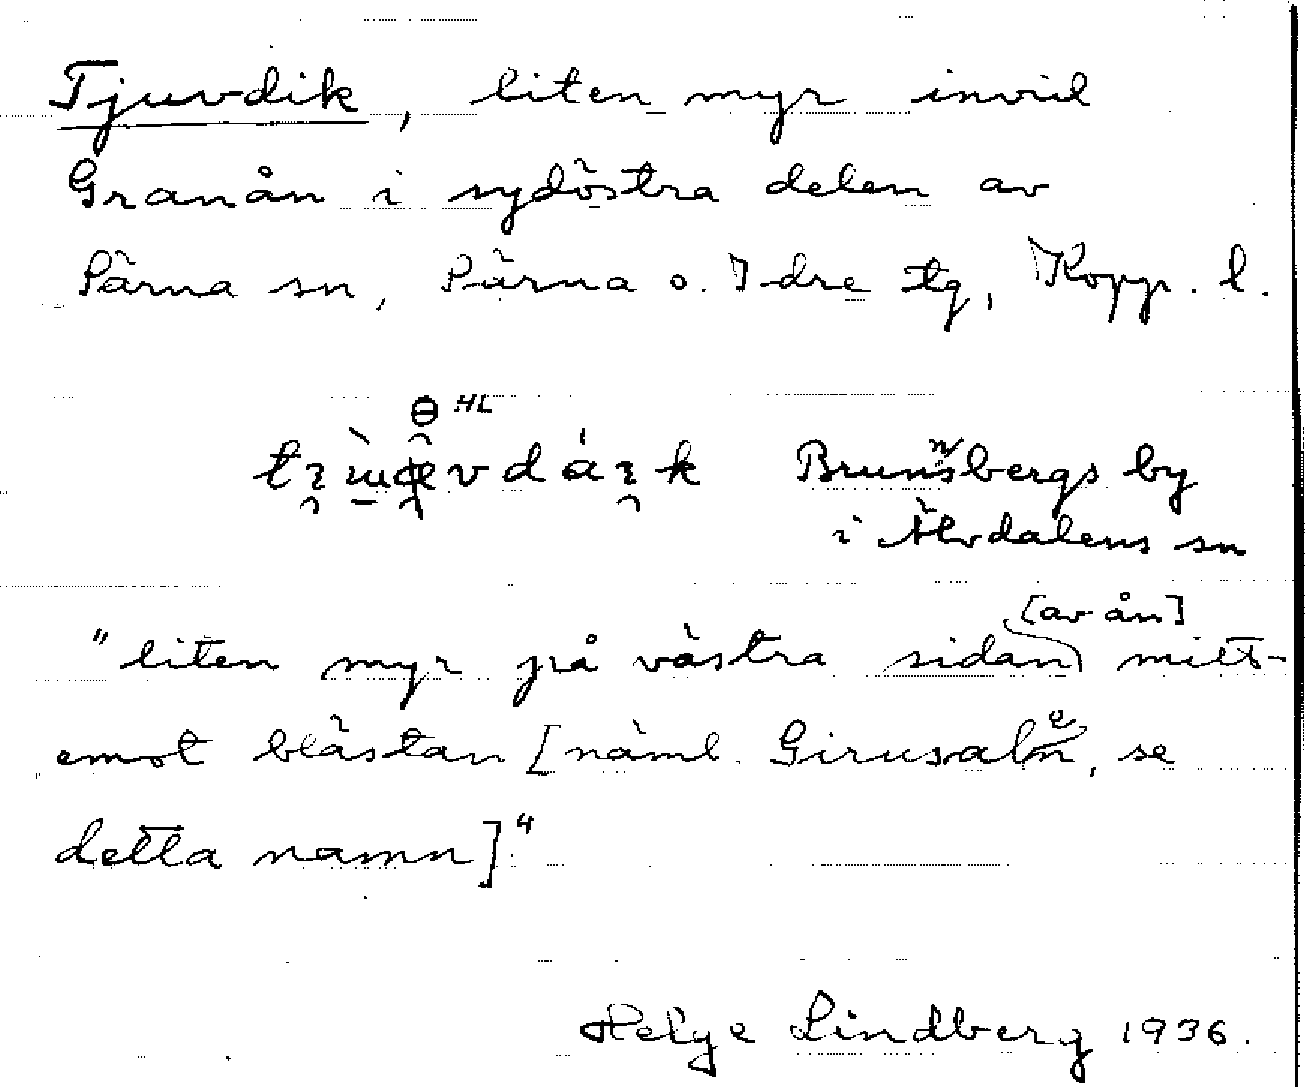 Tjuvdik, liten myr invid
Granån i sydöstra delen av
Särna sn, Särna o. Idre tg, Kopp. l.
HL
Brunnsbergs by
i Älvdalens sn
[av ån]
"liten myr på västra sidan mitt-
emot blästan [näml. Girusalen, se
detta namn]."
Helge Lindberg 1936.